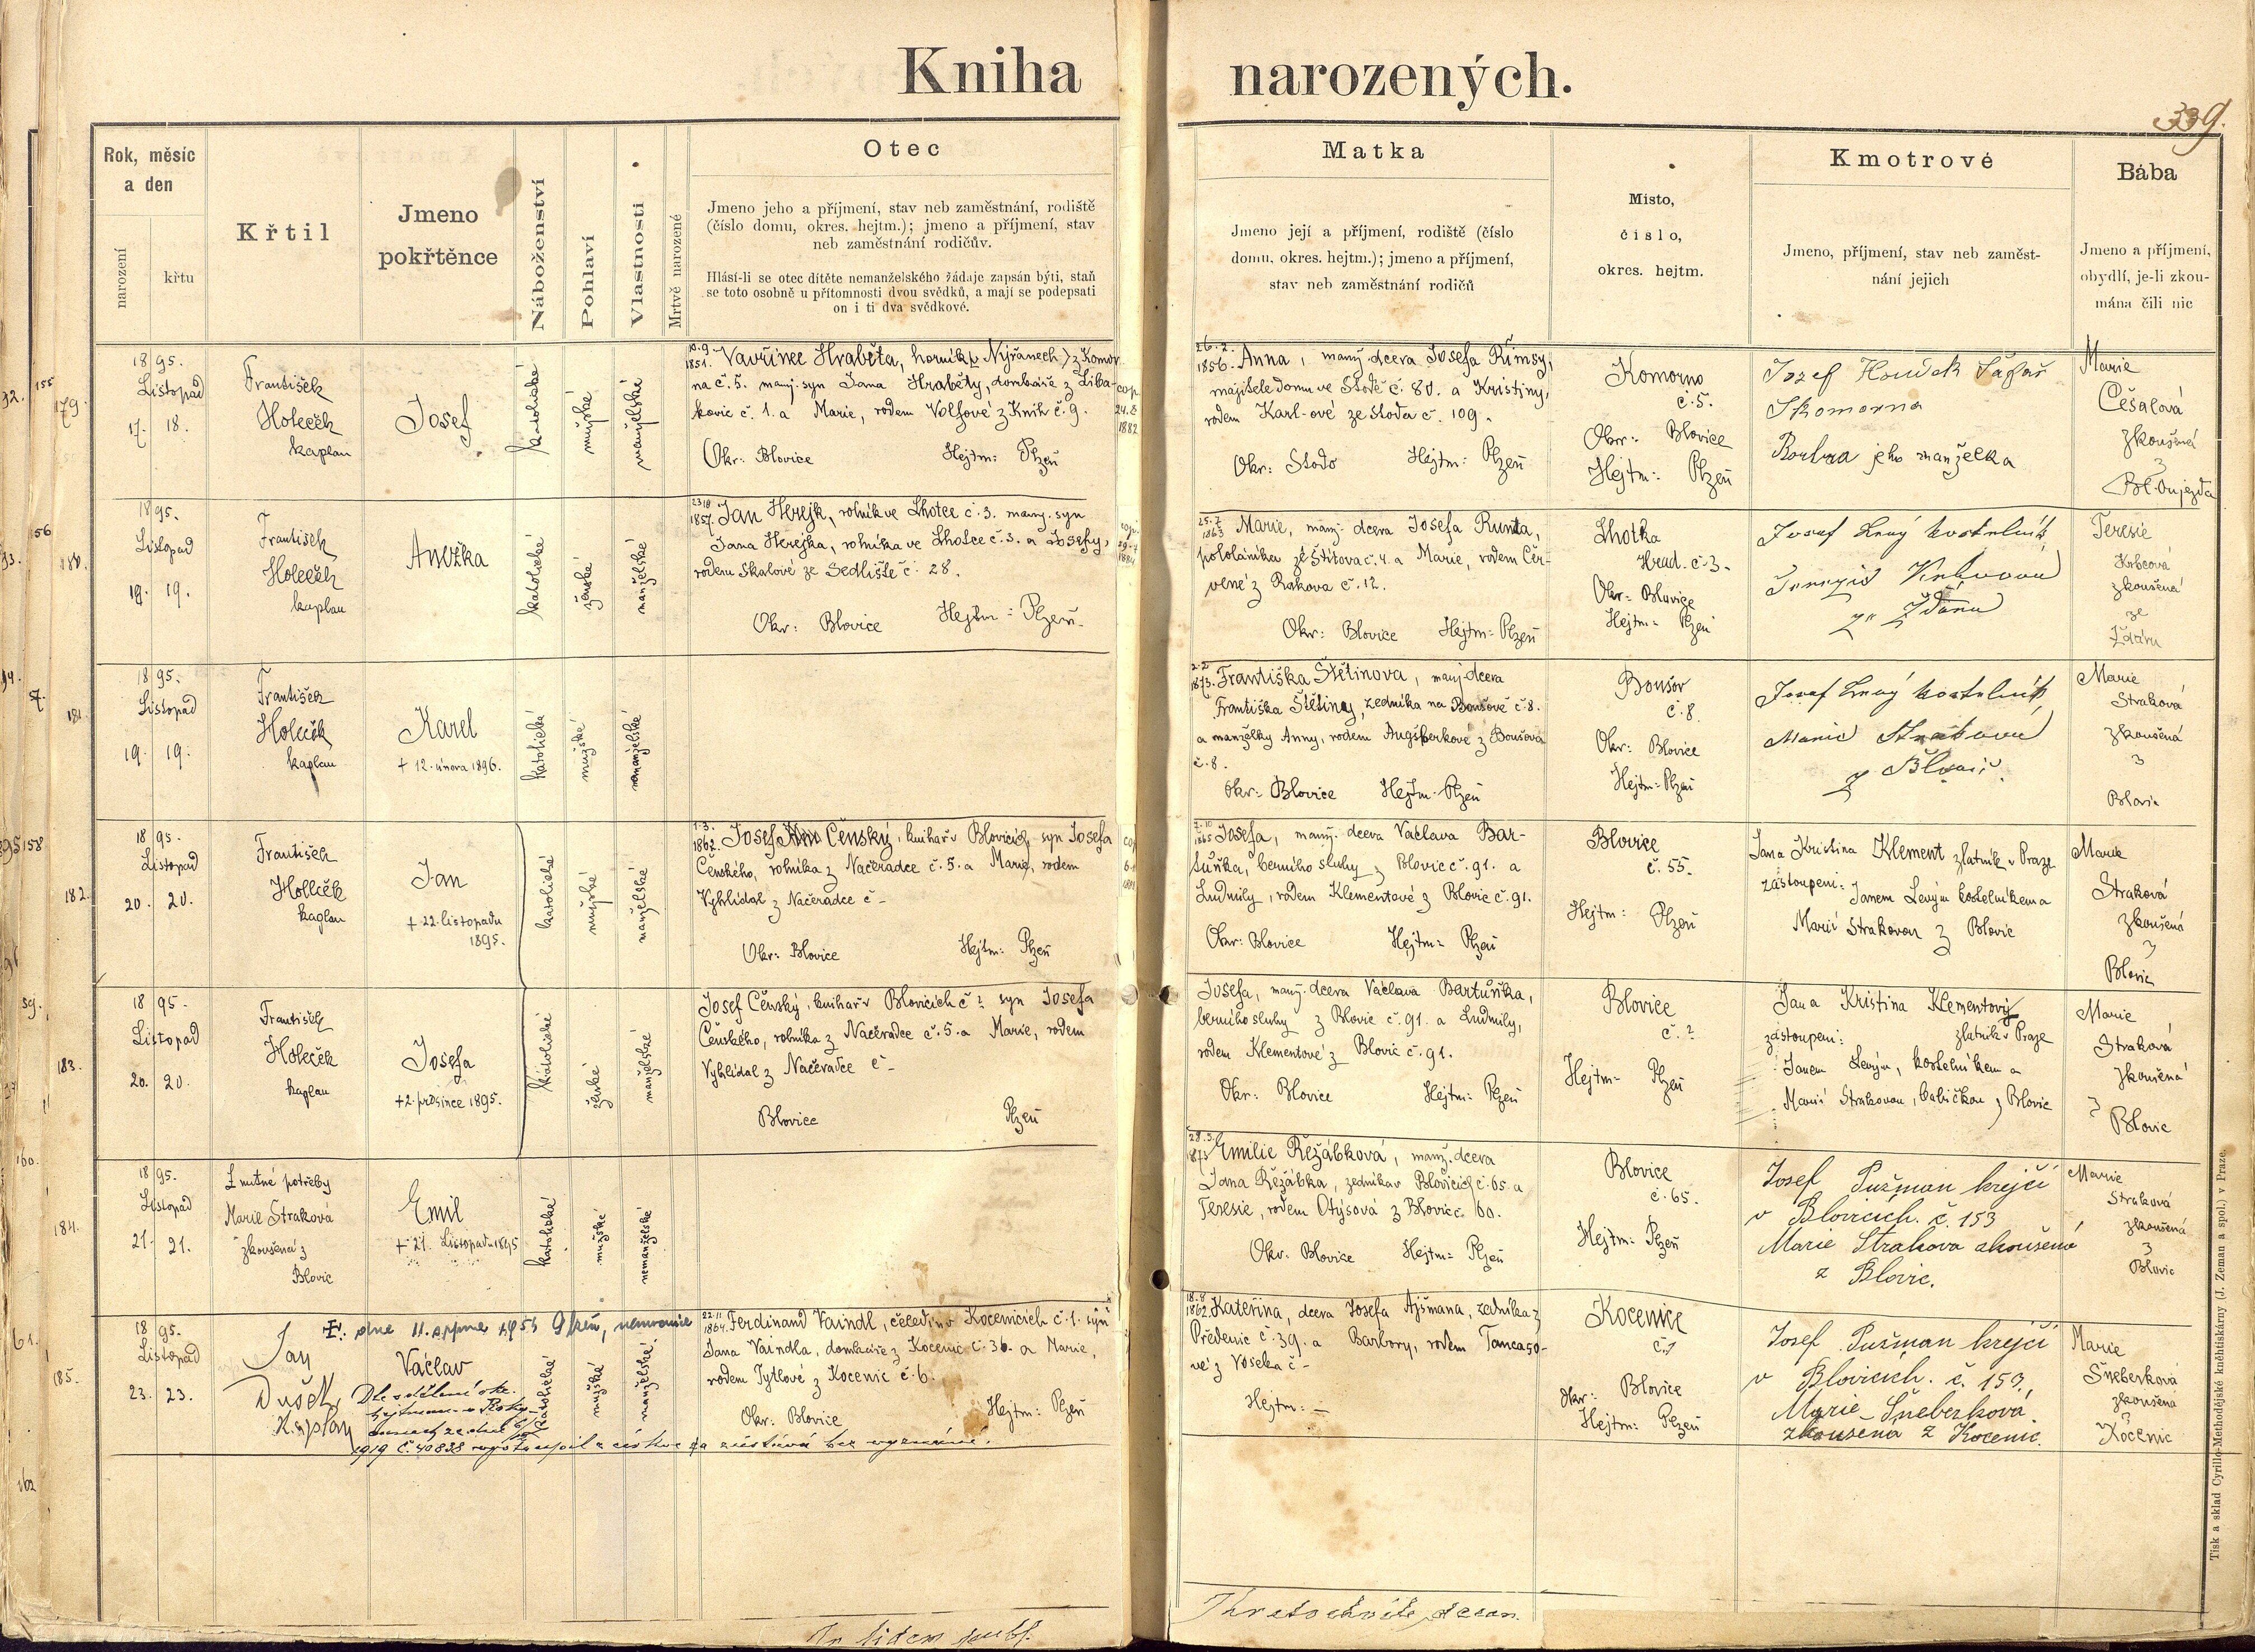 Kniha narozených.
339.
Rok, měsíc
a den
narození
křtu
Křtil
Jmeno
pokřtěnce
Náboženství
Pohlaví
Vlastnosti
Mrtvě narozené
Otec
Jmeno jeho a příjmení, stav neb zaměstnání, rodiště
(číslo domu, okres. hejtm.); jmeno a příjmení, stav
neb zaměstnání rodičův.
Hlásí-li se otec dítěte nemanželského žádaje zapsán býti, staň
se toto osobně u přítomnosti dvou svědků, a mají se podepsati
on i ti dva svědkové.
Matka
Jmeno její a příjmení, rodiště (číslo
domu, okres. hejtm.); jmeno a příjmení,
stav neb zaměstnání rodičů
Místo,
číslo,
okres. hejtm.
Kmotrové
Jmeno, příjmení, stav neb zaměst-
nání jejich
Bába
Jmeno a příjmení,
obydlí, je-li zkou-
mána čili nic
179.
1895.
Listopad
17. 18.
František
Holeček
kaplan
Josef
katolické
mužské
manželské
10.9.
1851. Vavřinec Hraběta, horník v Nýřanech z Komor-
na č. 5. manž. syn Jana Hraběty, domkáře z Liba-
kovic č. 1. a Marie, rodem Volfové z Knih č. 9.
Okr: Blovice Hejtm: Plzeň
1882
26.2.
1856. Anna, manž. dcera Josefa Římsy,
majitele domu ve Stodě č. 80. a Kristiny,
rodem Karl-ové ze Stoda č. 109.
Okr: Stodo Hejtm: Plzeň
Komorno
č. 5.
Okr: Blovice
Hejtm: Plzeň
Jozef Houdek Šafář
Skomorna
Barbra jeho manželka
Marie
Češalová
zkoušená
z
Bl. Oujezda
180.
1895.
Listopad
19. 19.
František
Holeček
kaplan
Anežka
katolické
ženské
manželské
1857. Jan Herejk, rolník ve Lhotce č. 3. manž. syn
Jana Herejka, rolníka ve Lhotce č. 3. a Josefy,
rodem Skalové ze Sedliště č. 28.
Okr: Blovice Hejtm: Plzeň.
25.7.
1863 Marie, manž. dcera Josefa Runta,
pololáníka ze Štítova č. 4. a Marie, rodem Čer-
vené z Rakova č. 12.
Okr: Blovice Hejtm: Plzeň
Lhotka
Hrad. č. 3.
Okr: Blovice
Hejtm: Plzeň
Josef Levý kostelník
Terezie Krbcová
ze Ždáru
Teresie
Krbcová
zkoušená
ze
Ždáru
181.
1895.
Listopad
19. 19.
František
Holeček
kaplan
Karel
+ 12. února 1896.
katolické
mužské
nemanželské
2.2.
1873. Františka Štětinova, manž. dcera
Františka Štětiny, zedníka na Boušově č. 8.
a manželky Anny, rodem Augšperkové z Boušova
č. 8.
Okr: Blovice Hejtm: Plzeň
Boušov
č. 8.
Okr: Blovice
Hejtm: Plzeň
Josef Levý kostelník,
Marie Straková
z Blovic.
Marie
Straková
zkoušená
z
Blovic
182.
1895.
Listopad
20. 20.
František
Holeček
kaplan
Jan
+ 22. listopadu
1895.
katolické
mužské
manželské
1.3.
1862. Josef Čenský, knihař v Blovicích, syn Josefa
Čenského, rolníka z Načeradce č. 5. a Marie, rodem
Vyhlídal z Načeradce č –
Okr: Blovice Hejtm: Plzeň
Josefa, manž. dcera Václava Bar-
tuňka, berního sluhy z Blovic č. 91. a
Ludmily, rodem Klementové z Blovic č. 91.
Okr: Blovice Hejtm: Plzeň
Blovice
č. 55.
Hejtm: Plzeň
Jana Kristina Klement zlatník v Praze
zastoupeni: Janem Levým kostelníkem a
Marií Strakovou z Blovic
Marie
Straková
zkoušená
z
Blovic
183.
1895.
Listopad
20. 20.
František
Holeček
kaplan
Josefa
+ 2. prosince 1895.
katolické
ženské
manželské
Josef Čenský, knihař v Blovicích č ? syn Josefa
Čenského, rolníka z Načeradce č. 5. a Marie, rodem
Vyhlídal z Načeradce č –
Blovice Plzeň
Josefa, manž. dcera Václava Bartuňka,
berního sluhy z Blovic č. 91. a Ludmily,
rodem Klementové z Blovic č. 91.
Okr: Blovice Hejtm: Plzeň
Blovice
č. ?
Hejtm: Plzeň
Jana Kristina Klementový
zastoupeni: zlatník v Praze
Janem Levým, kostelníkem a
Marií Strakovou, babičkou z Blovic
Marie
Straková
zkoušená
z Blovic
184.
1895.
Listopad
21. 21.
Z nutné potřeby
Marie Straková
zkoušená z
Blovic
Emil
+ 21. Listopadu 1895
katolické
mužské
nemanželské
28.3.
1873 Emilie Řežábková, manž. dcera
Jana Řežábka, zedníka v Blovicích č. 65. a
Teresie, rodem Otýsová z Blovic č. 60.
Okr: Blovice Hejtm: Plzeň
Blovice
č. 65.
Hejtm: Plzeň
Josef Pužman krejčí
v Blovicích. č. 153
Marie Straková zkoušená
z Blovic.
Marie
Straková
zkoušená
z
Blovic
185.
1895.
Listopad
23. 23.
Jan
Dušek,
Kaplan
dne 11. srpna 1955 Plzeň, nemocnice
Václav
Dle sdělení okr.
1919 č. 40828 vystoupil z církve a zůstává bez vyznání.
katolické
mužské
manželské
22.11.
1864. Ferdinand Vaindl, čeledín v Kocenicích č. 1. syn
Jana Vaindla, domkáře z Kocenic č. 36. a Marie,
rodem Tytlové z Kocenic č. 6.
Okr: Blovice Hejtm: Plzeň
18.8.
1862. Kateřina, dcera Josefa Ajšmana, zedníka z
Předenic č. 39. a Barbory, rodem Tancaso-
vé z Voseka č –
Hejtm: –
Kocenice
č. 1
Okr: Blovice
Hejtm: Plzeň
Josef Pužman krejčí
v Blovicích. č. 153,
Marie Šneberková
zkoušena z Kocenic.
Marie
Šneberková
zkoušená
z
Kocenic
In fidem publ.
Tisk a sklad Cyrillo-Methodějské kněhtiskárny (J. Zeman a spol.) v Praze.